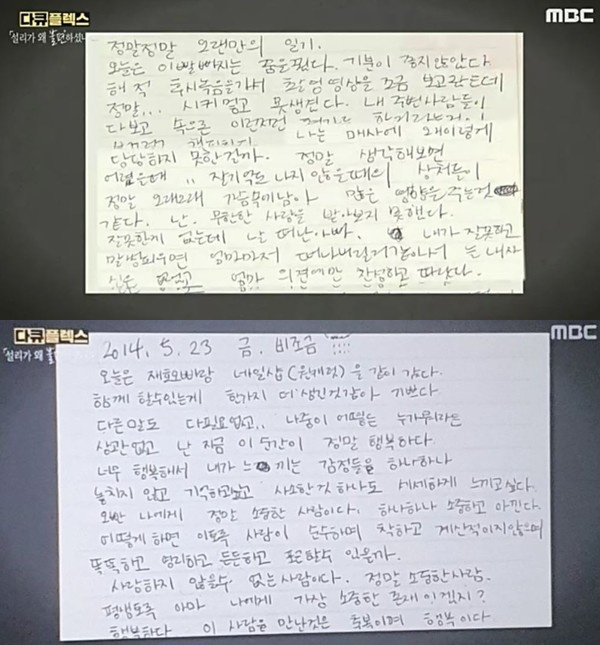 다큐플렉스
설리가 왜 불편하셨나
MBC
정말정말 오랜만의 일기.
오늘은 이빨빠지는 꿈을꿨다. 기분이 좋지않았다
해적 후시녹음을가서 촬영영상을 조금 보고왔는데
정말... 시커멓고 못생겼다. 내 주변사람들이
다보고 속으론 이런저런
나는 매사에 왜이렇게
당당하지 못한걸까. 정말 생각해보면
어렸을때.. 잘기억도 나지 않을때의 상처들이
정말 오래오래 가슴속에남아 많은 영향을주는것
같다. 난. 무한한 사랑을 받아보지 못했다.
잘못한게 없는데 날 떠난아빠. 내가 잘못하고
말썽피우면 엄마마저 떠나버릴거같아서 늘 내자
신은 없었고 엄마 의견에만 찬성하고 따랐다.
다큐플렉스
설리가 왜 불
MBC
2014. 5. 23 금. 비조금
오늘은 재호오빠랑 네일샵(원캐럿)을 같이 갔다.
함께 할수있는게 한가지 더 생긴것같아 기쁘다
다른말도 다필요없고.. 나중이 어떻든 누가뭐라든
상관없고 난 지금 이 순간이 정말 행복하다.
너무 행복해서 내가 느끼는 감정들을 하나하나
놓치지 않고 기억하고싶고 사소한것 하나도 세세하게 느끼고싶다.
오빤 나에게 정말 소중한 사람이다. 하나하나 소중하고 아낀다.
어떻게 하면 이토록 사람이 순수하며 착하고 계산적이지않으며
똑똑하고 영리하고 든든하고 포근할수 있을까.
사랑하지 않을수 없는사람이다. 정말 소중한사람.
평생토록 아마 나에게 가장 소중한 존재이겠지?
행복하다 이 사람을 만난것은 축복이며 행복이다